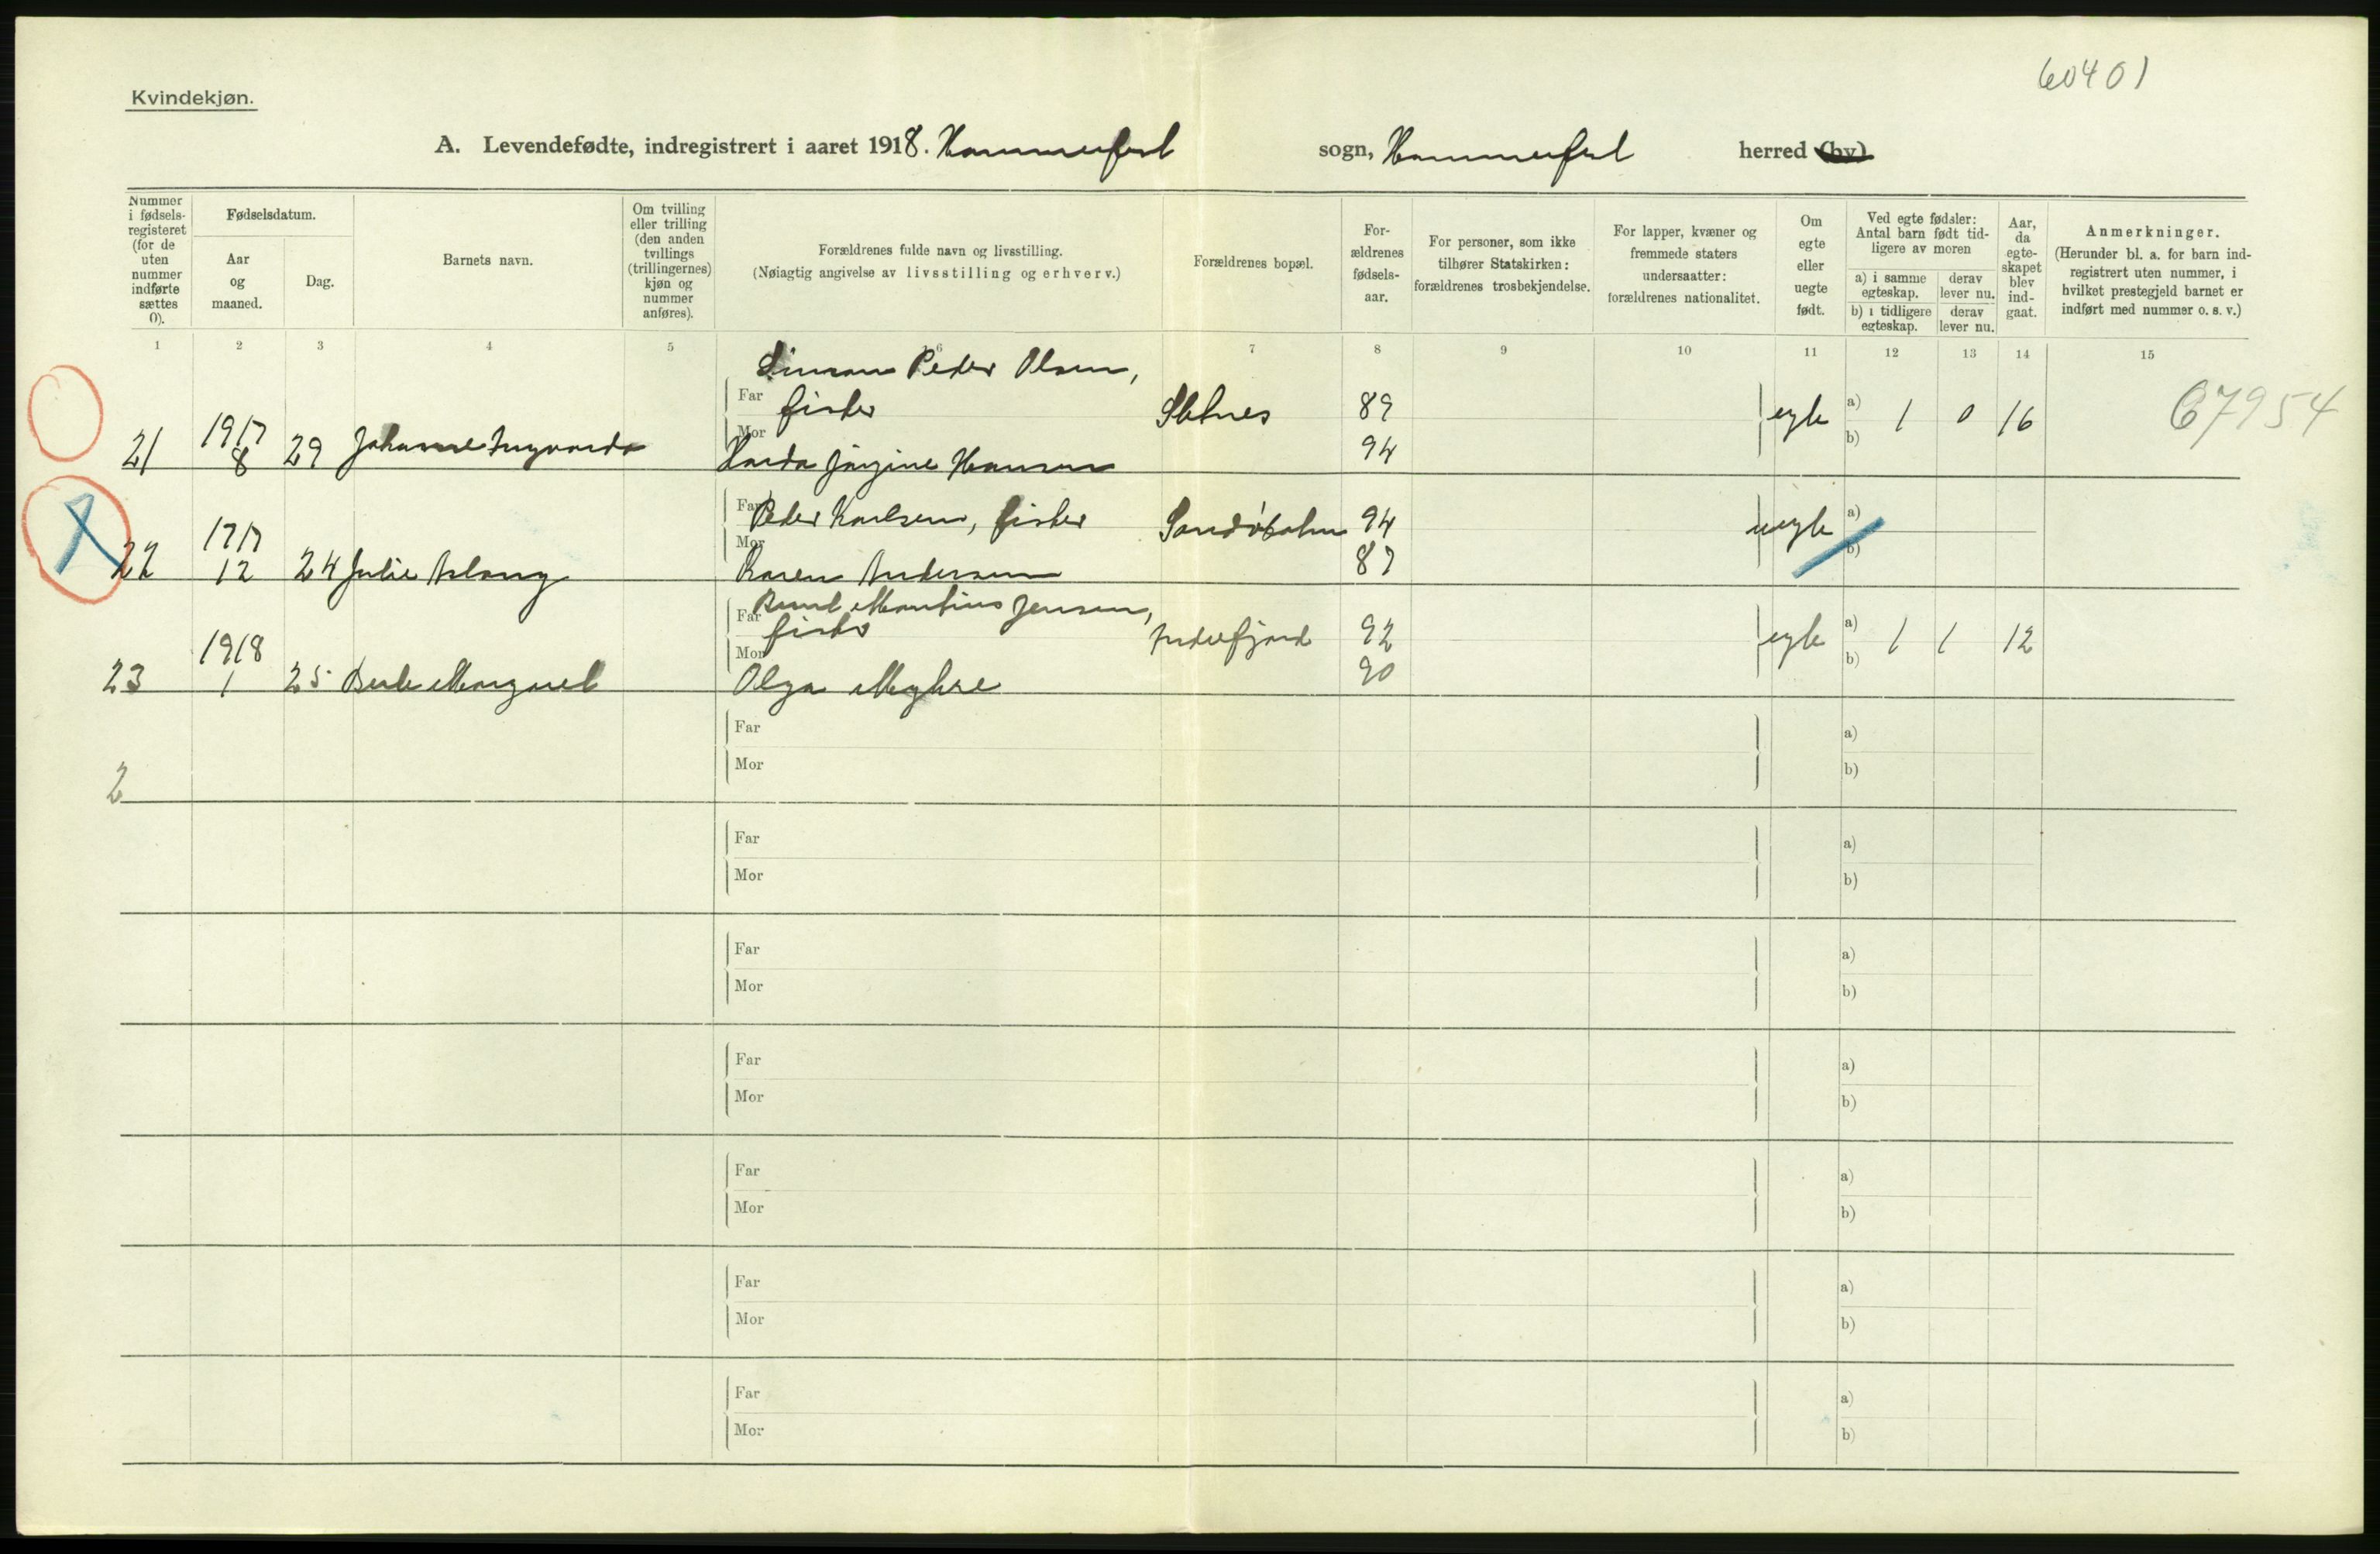 60401
Kvindekjøn.
A. Levendefødte, indregistrert i aaret 1918. Hammerfest sogn, Hammerfest herred (by)
Nummer i fødsels-registeret (for de uten nummer indførte sættes 0).
Fødselsdatum.
Aar og maaned.
Dag.
Barnets navn.
Om tvilling eller trilling (den anden tvillings (trillingernes) kjøn og nummer anføres).
Forældrenes fulde navn og livsstilling.
(Nøiagtig angivelse av livsstilling og erhverv.)
Forældrenes bopæl.
For-ældrenes fødsels-aar.
For personer, som ikke tilhører Statskirken: forældrenes trosbekjendelse.
For lapper, kvæner og fremmede staters undersaatter: forældrenes nationalitet.
Om egte eller uegte født.
Ved egte fødsler: Antal barn født tid-ligere av moren
a) i samme egteskap.
derav lever nu.
b) i tidligere egteskap.
derav lever nu.
Aar, da egte-skapet blev ind-gaat.
Anmerkninger.
(Herunder bl. a. for barn ind-registrert uten nummer, i hvilket prestegjeld barnet er indført med nummer o. s. v.)
1 2 3 4 5 6 7 8 9 10 11 12 13 14 15
Simon Peder Olsen,
Far fisker Sletnes 89 egte a) 1 0 16 67954
21 1917 8 29 Johanne
Mor Jørgine Hansen 94 b)
Far Peder Karlsen, fisker 94 uegte a)
22 1917 12 24 Julie Aslaug
Mor Karen Andersen 87 b)
Martinus Jensen,
Far fisker Indrefjord 92 egte a) 1 1 12
23 1918 1 25 Margret
Mor Olga Myhre 90 b)
Far a)
Mor b)
2
Far a)
Mor b)
Far a)
Mor b)
Far a)
Mor b)
Far a)
Mor b)
Far a)
Mor b)
Far a)
Mor b)